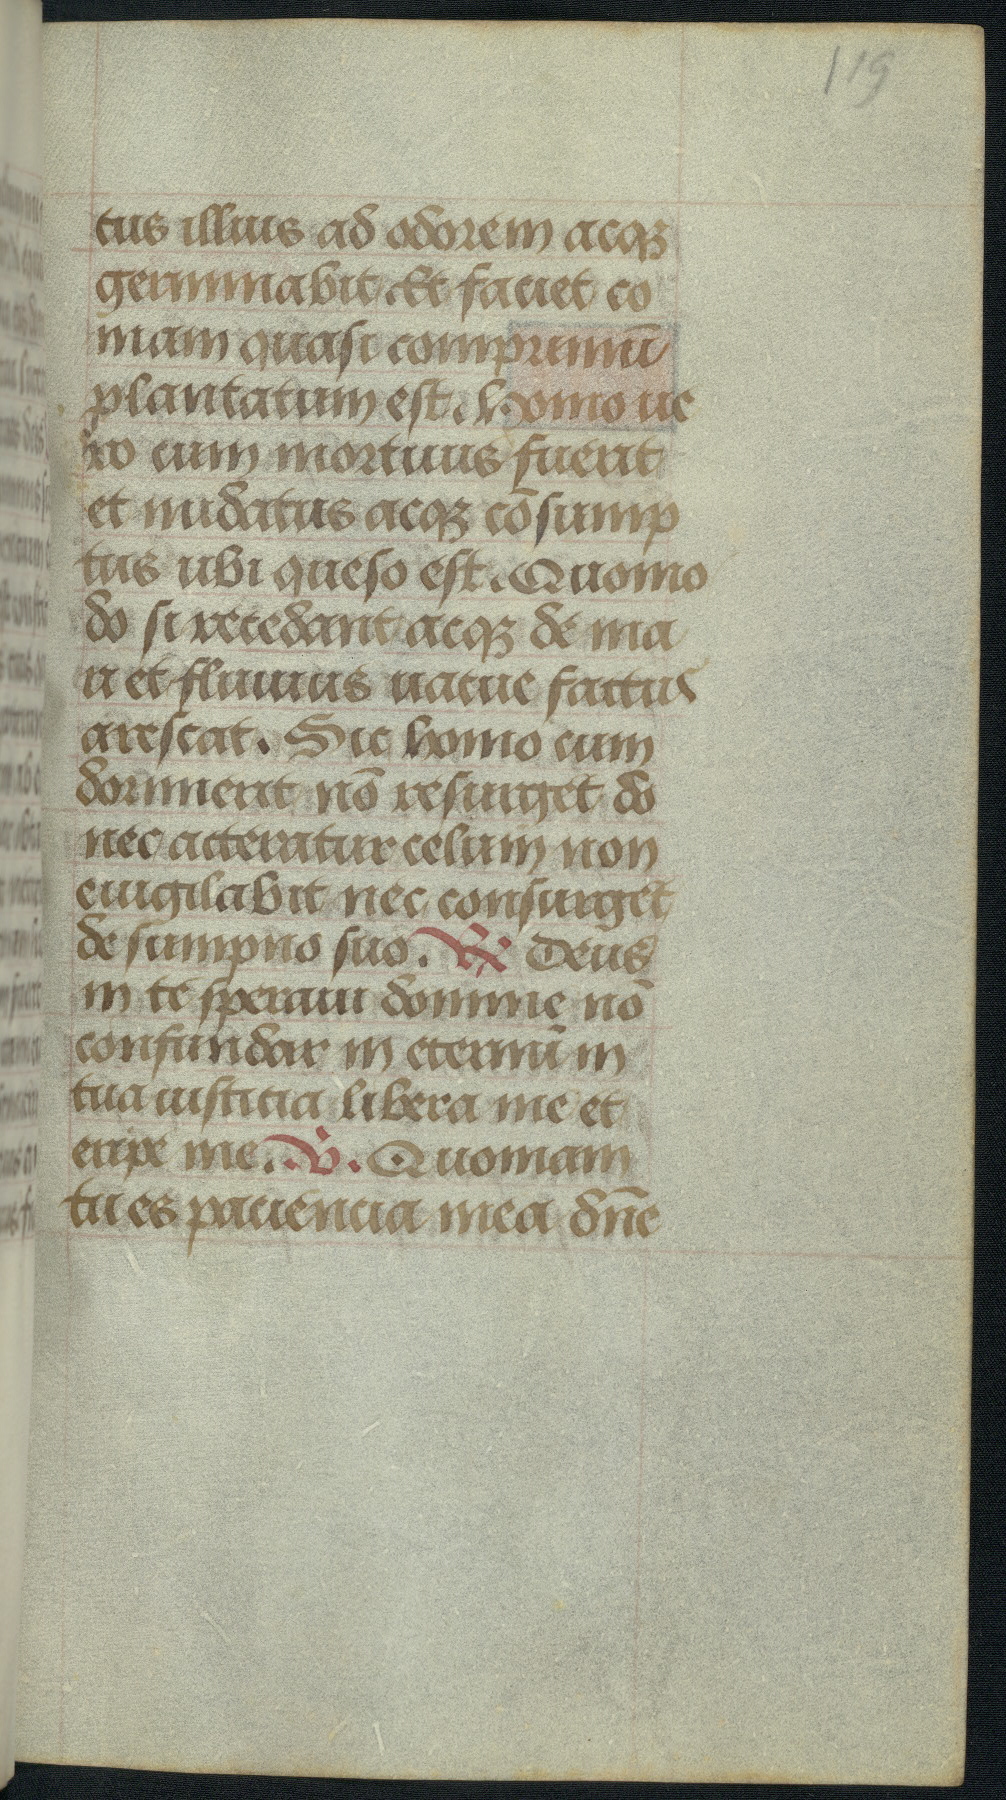 119
tus illius ad odorem acqꝫ
germinabit. Et faciet co
mam quasi comprimū
plantatum est. homo ue
ro cum mortuus fuerit
et nudatus acqꝫ cōsump
tus ubi queso est. Quomo
do si recedant acqꝫ de ma
ri et fluuius uacue factus
arescat. Sic homo cum
dormierit nō resurget do
nec acteratur celum non
euigilabit nec consurget
de sumpno suo. ℟ Deus
in te speraui domine nō
confundar in eternū in
tua iusticia libera me et
eripe me. .℣. Quoniam
tu es paciencia mea dn̄e